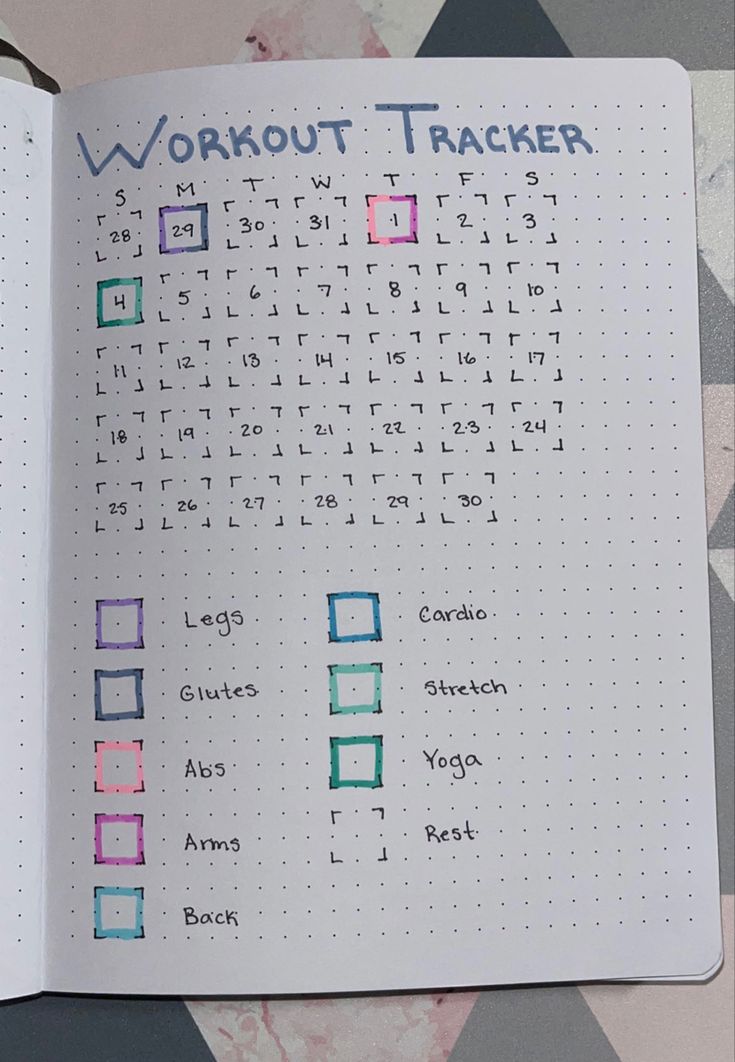 WORKOUT TRACKER
S M T W T F S
28 29 30 31 1 2 3
4 5 6 7 8 9 10
11 12 13 14 15 16 17
18 19 20 21 22 23 24
25 26 27 28 29 30
Legs Cardio
Glutes Stretch
Abs Yoga
Arms Rest
Back